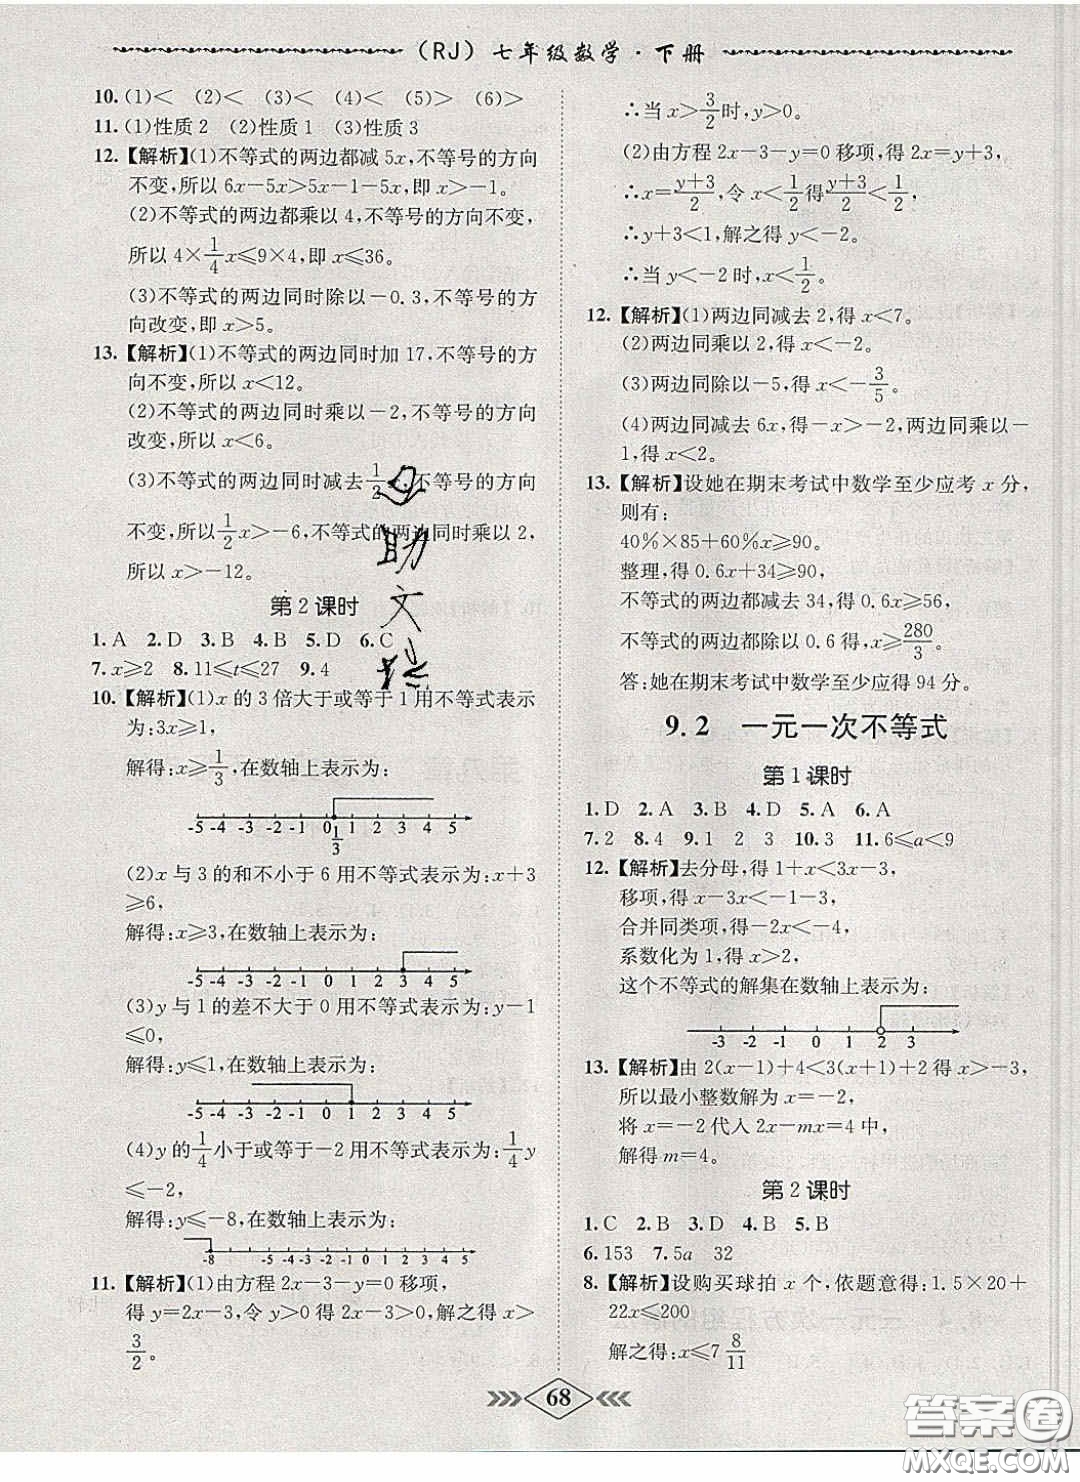 (RJ) 七年级数学·下册
10. (1)< (2)< (3)< (4)< (5)> (6)>
11. (1)性质 2 (2)性质 1 (3)性质 3
12.【解析】(1)不等式的两边都减 5x,不等号的方向
不变,所以 6x-5x>5x-1-5x,即 x>-1。
(2)不等式的两边都乘以 4,不等号的方向不变,
所以 4×1/4x≤9×4,即 x≤36。
(3)不等式的两边同时除以-0.3,不等号的方
向改变,即 x>5。
13.【解析】(1)不等式的两边同时加 17,不等号的方
向不变,所以 x<12。
(2)不等式的两边同时乘以-2,不等号的方向
改变,所以 x<6。
(3)不等式的两边同时减去1/2x,不等号的方向
不变,所以1/2x>-6,不等式的两边同时乘以 2,
所以 x>-12。
第 2 课时
1. A 2. D 3. B 4. B 5. D 6. C
7. x≥2 8. 11≤t≤27 9. 4
10.【解析】(1)x 的 3 倍大于或等于 1 用不等式表示
为:3x≥1,
解得:x≥1/3,在数轴上表示为:
-5 -4 -3 -2 -1 0 1/3 1 2 3 4 5
(2)x 与 3 的和不小于 6 用不等式表示为:x+3
≥6,
解得:x≥3,在数轴上表示为:
-5 -4 -3 -2 -1 0 1 2 3 4 5
(3)y 与 1 的差不大于 0 用不等式表示为:y-1
≤0,
解得:y≤1,在数轴上表示为:
-5 -4 -3 -2 -1 0 1 2 3 4 5
(4)y 的1/4小于或等于-2 用不等式表示为:1/4y
≤-2,
解得:y≤-8,在数轴上表示为:
-8 -5 -4 -3 -2 -1 0 1 2 3 4 5
11.【解析】(1)由方程 2x-3-y=0 移项,
得 y=2x-3,令 y>0 得 2x-3>0,解之得 x>
3/2。
∴当 x>3/2时,y>0。
(2)由方程 2x-3-y=0 移项,得 2x=y+3,
∴x=(y+3)/2,令 x<1/2得(y+3)/2<1/2,
∴y+3<1,解之得 y<-2。
∴当 y<-2 时,x<1/2。
12.【解析】(1)两边同减去 2,得 x<7。
(2)两边同乘以 2,得 x<-2。
(3)两边同除以-5,得 x<-3/5。
(4)两边同减去 6x,得-x>-2,两边同乘以-
1,得 x<2。
13.【解析】设她在期末考试中数学至少应考 x 分,
则有:
40%×85+60%x≥90。
整理,得 0.6x+34≥90,
不等式的两边都减去 34,得 0.6x≥56,
不等式的两边都除以 0.6 得,x≥280/3。
答:她在期末考试中数学至少应得 94 分。
9.2 一元一次不等式
第 1 课时
1. D 2. A 3. B 4. D 5. A 6. A
7. 2 8. 4 9. 1 2 3 10. 3 11. 6≤a<9
12.【解析】去分母,得 1+x<3x-3,
移项,得 x-3x<-1-3,
合并同类项,得-2x<-4,
系数化为 1,得 x>2,
这个不等式的解集在数轴上表示为:
-3 -2 -1 0 1 2 3
13.【解析】由 2(x-1)+4<3(x+1)+2 得 x>-3,
所以最小整数解为 x=-2,
将 x=-2 代入 2x-mx=4 中,
解得 m=4。
第 2 课时
1. C 2. B 3. D 4. B 5. B
6. 153 7. 5a 32
8.【解析】设购买球拍 x 个,依题意得:1.5×20+
22x≤200
解之得:x≤7 8/11
68
答案圈
MXQE.COM